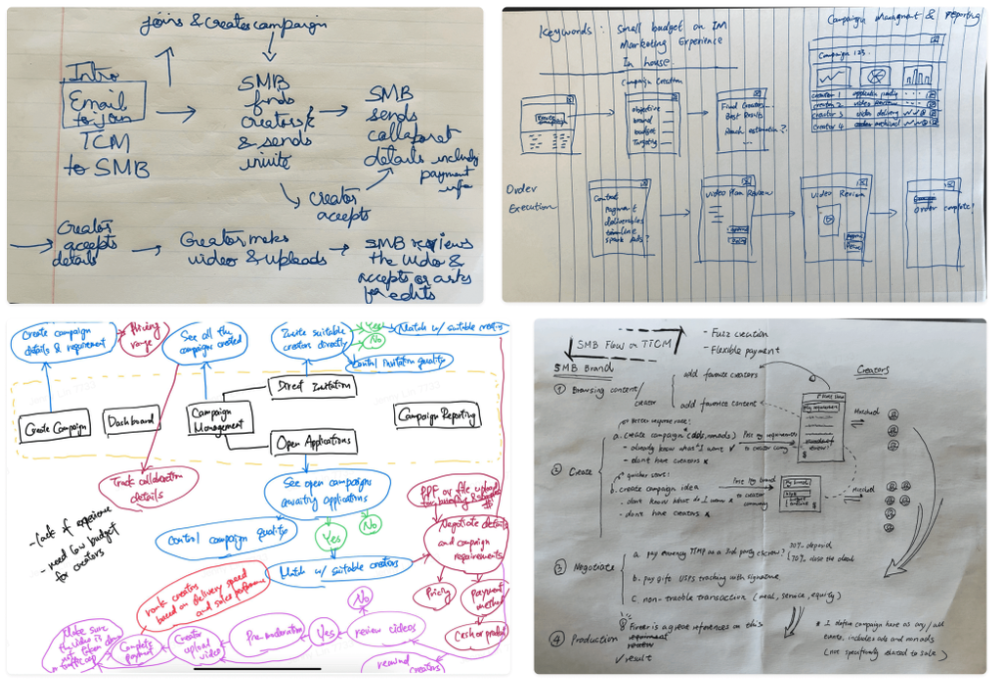 joins & creates campaign
Intro
Email
to join
TCM
to SMB
SMB
finds
creators
& sends
invite
SMB
sends
details including
payment
info
Creator
accepts
Creator
accepts
details
Creator makes
video & uploads
SMB reviews
the video &
accepts or asks
for edits
Keywords: Small budget on IM
Marketing Experience
In house
Campaign Managment & reporting
Campaign Creation
objective
brand
budget
targeting
Find Creators
Best Results
Reach estimation?
Campaign 123.
creator 1
creator 2
creator 3 video delivery
creator 4
Order
Execution
Contract
Payment
deliverables
timeline
spark ads?
Video Plan Review
Video Review
Order complete!
Create campaign
details & requirement
Hiring
range
See all the
campaigns created
Invite suitable
creators directly
Yes
No
Match w/ suitable creators
Control invitation quality
Create Campaign
Dashboard
Campaign
Management
Direct Invitation
Open Applications
Campaign Reporting
Track collaboration
details
See open campaign
awaiting applications
- Lack of experience
- need low budget
for creators
Control campaign quality
Yes
No
Match w/ suitable creators
Negotiate details
and campaign
requirements
Pricing
Payment
method
Cash or product
rank creators
based on delivery speed
and sales performance
No
review videos
Yes
Pre-moderation
Creator
upload
video
Complete
payment
Make sure
the video is
rewind
creators
SMB Flow on TTCM
- Fuzz creation
- Flexible payment
SMB Brand
Creators
① Browsing content/
creator
add favorite creators
add favorite content
② Create
a. create campaign
- already know what I want
- don't have creators x
b. create campaign idea
- don't know what do I want
- don't have creators x
matched
matched
③ Negotiate
70% close the deal
b. pay gifts USPS tracking with signature
c. non-trackable transaction (meal, service, equity)
④ Production
Fiverr is a great references on this
✓ result